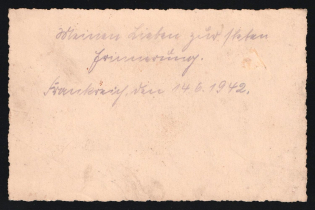 Meinen Lieben zur steten
Erinnerung.
Frankreich, den 14.6.1942.